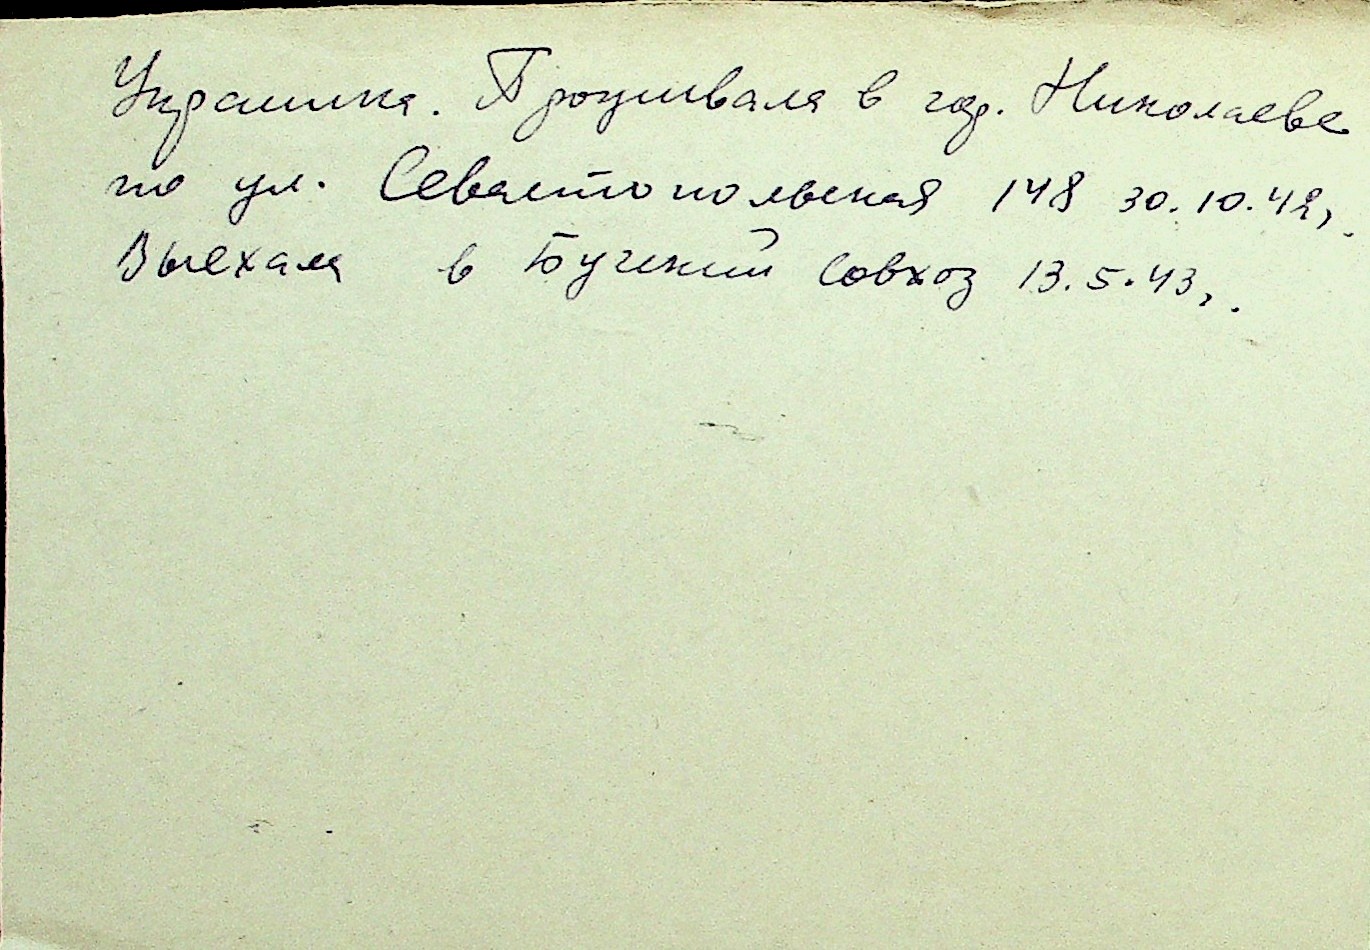 Украинка. Проживала в гор. Николаеве
по ул. Севастопольская 148 30.10.42г.
Выехала в Бугский Совхоз 13.5.43г.